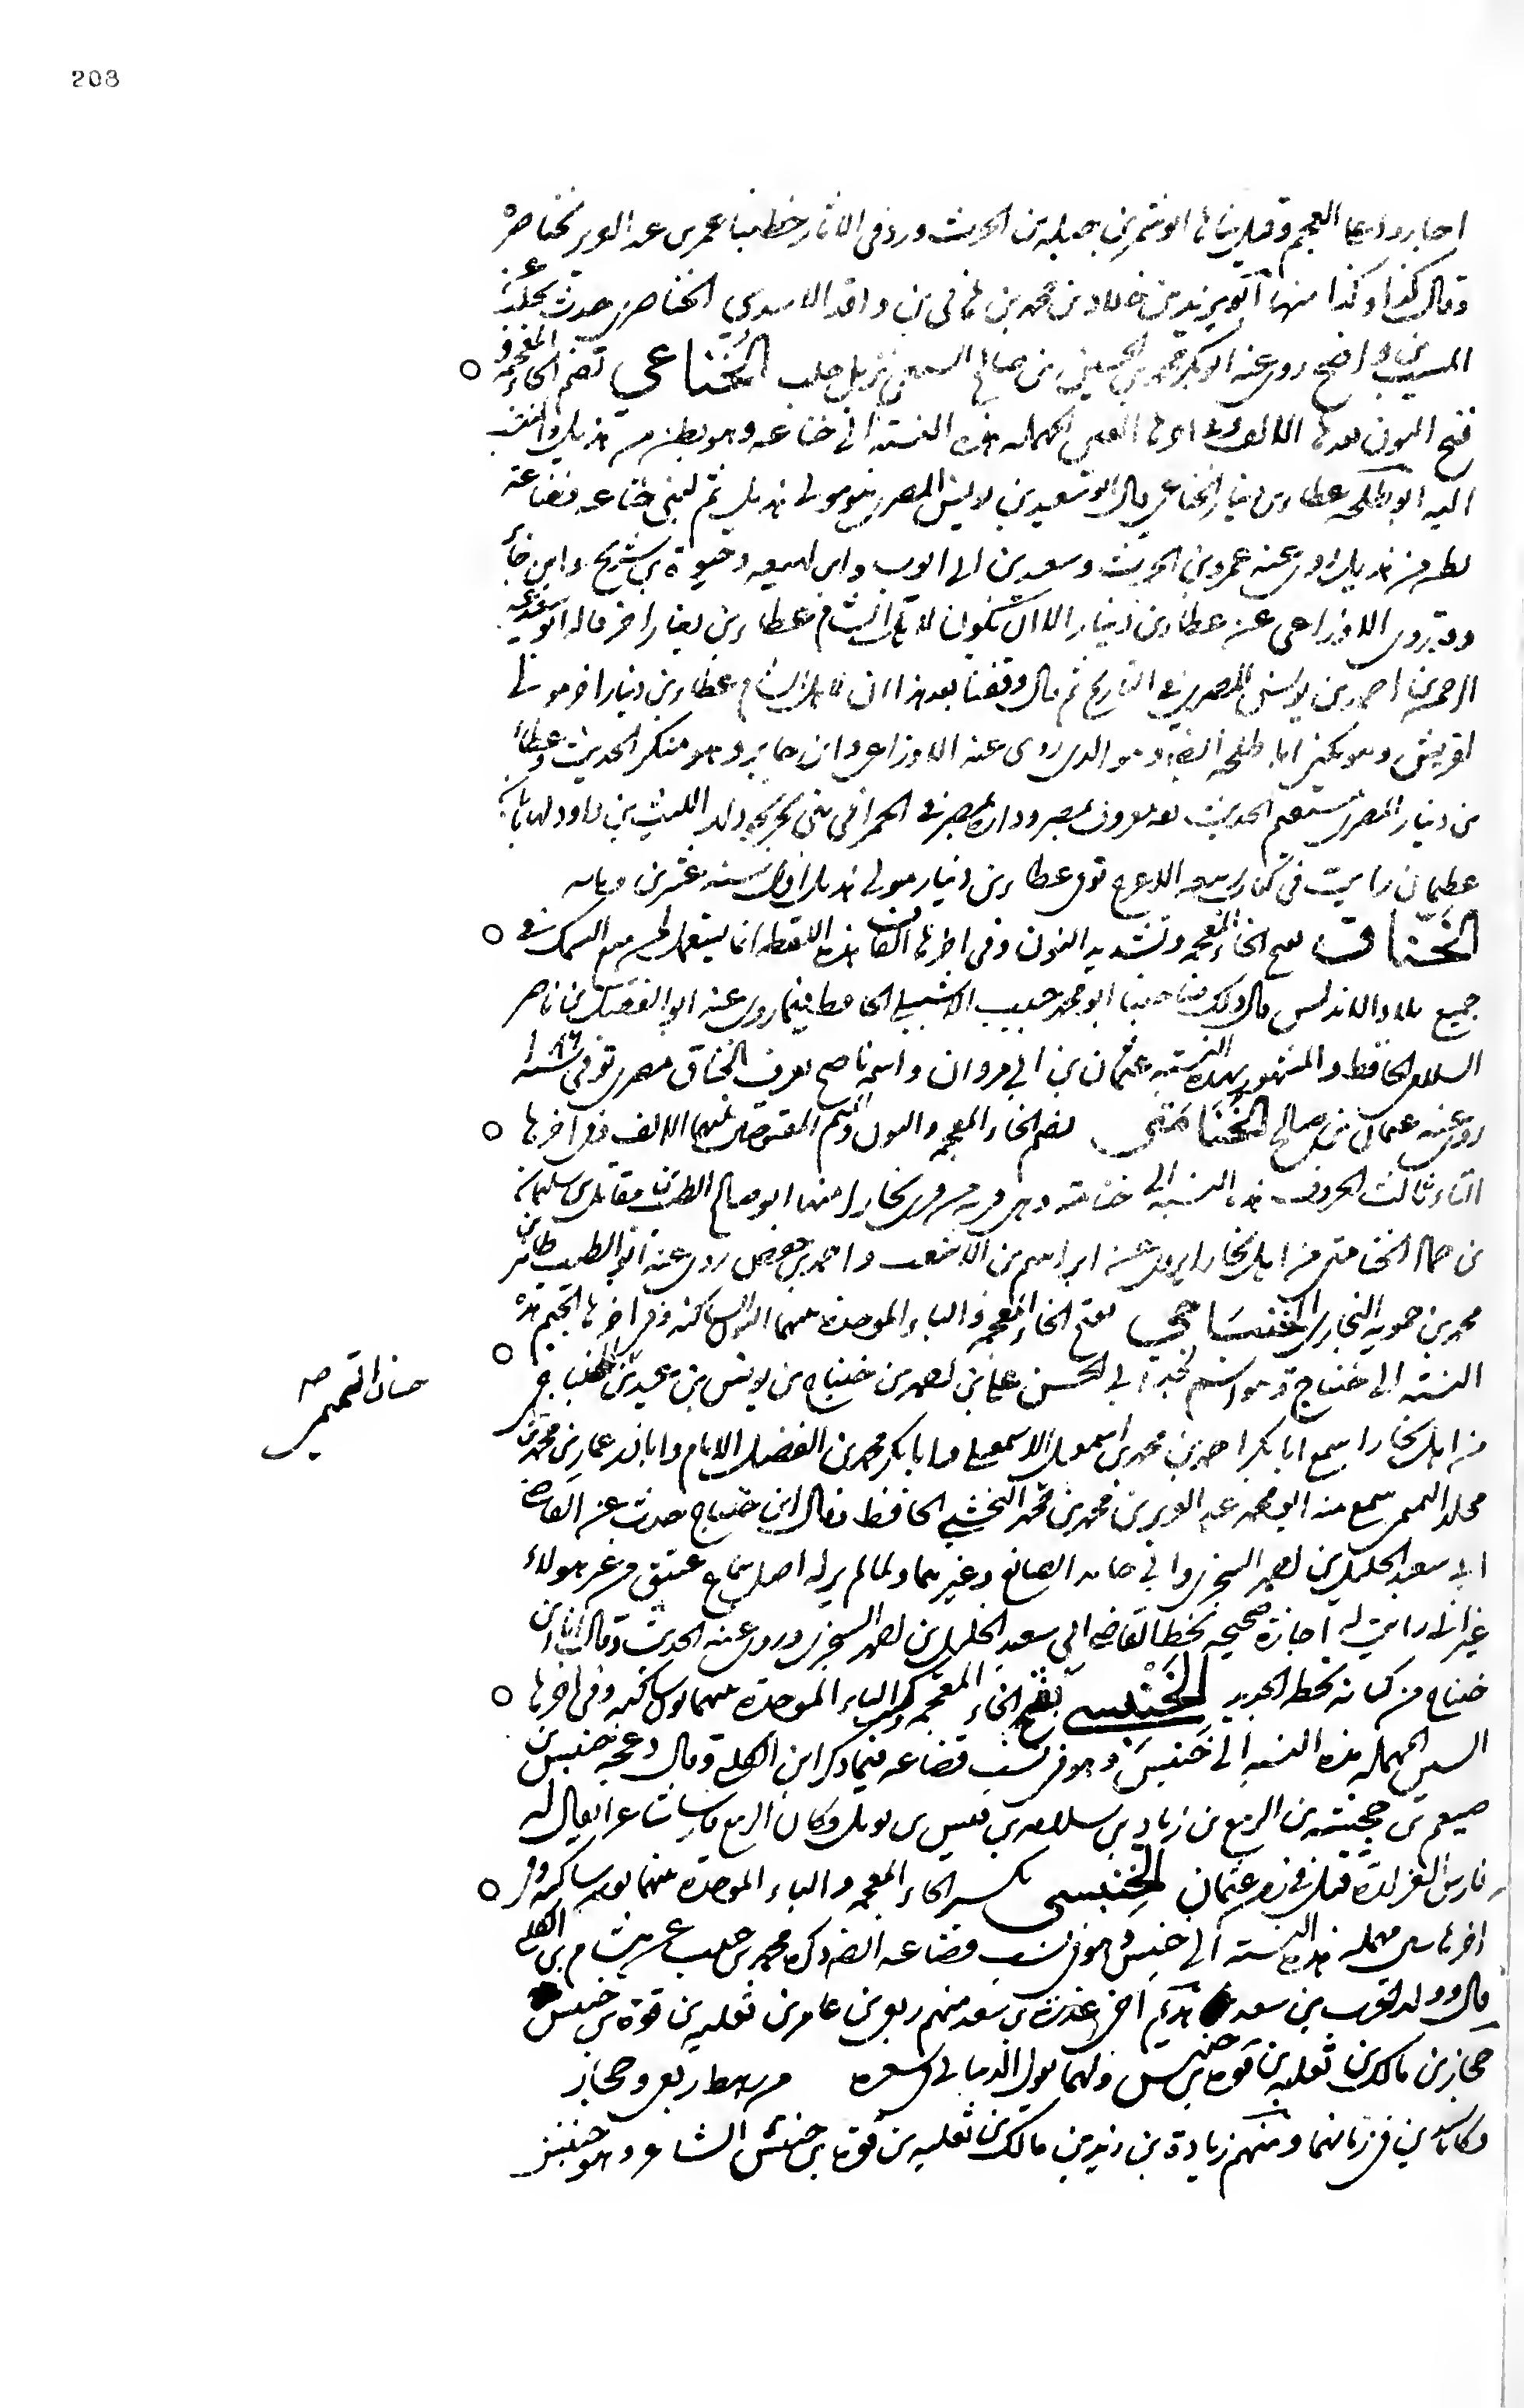 208
وقيل بناها ابو شمر بن جبلة بن الحرث ورد في الاثار خطبنا عمر بن عبد العزيز بخناصرة
وقال كذا وكذا منها ابو يزيد بن خلاد بن محمد بن هاني بن واقد الاسدي الخناصري حدث بحلب عن
المسيب بن واضح روى عنه ابو بكر محمد بن الحسين بن صالح السبيعي نزيل حلب الخُنَاعي بضم الخاء المعجمة و
فتح النون بعدها الالف وفي اخرها العين المهملة هذه النسبة الى خناعة وهو بطن من هذيل والمنتسب
اليه ابو طلحة عطاء بن دينار الخناعي قال ابو سعيد بن يونس المصري هو مولى هذيل ثم لبني خناعة وخناعة
بطن من هذيل روى عنه عمرو بن الحرث وسعيد بن ابي ايوب وابن لهيعة وحيوة بن شريح وابن جابر
وقد روى الاوزاعي عن عطاء بن دينار الا ان يكون لاهل الشام عطاء بن دينار اخر قاله ابو سعيد عبد
الرحمن بن احمد بن يونس المصري في التاريخ ثم قال وقفنا بعد هذا ان لاهل الشام عطاء بن دينار اخر مولى
لقريش وهو يكنى ابا طلحة ايضا وهو الذي روى عنه الاوزاعي وابن جابر وهو منكر الحديث وعطاء
بن دينار المصري مستقيم الحديث ثقة معروف بمصر وداره بمصر في الحمراء في بني بحر
رايت في كتاب ربيعة الاعرج توفي عطاء بن دينار مولى هذيل سنة ست وعشرين وماية
الخَنَّاق بفتح الخاء المعجمة وتشديد النون وفي اخرها القاف هذه اللفظة انما يستعمل لمن يبيع السمك في
جميع بلاد الاندلس قال ذلك صاحبنا ابو محمد حبيب الاشبيلي الحافظ فيما روى عنه ابو الفضل بن ناصر
السلامي الحافظ والمشهور بهذه النسبة عثمان بن ابي مروان واسمه ناصح يعرف بالخناق مصري توفي سنة
روى عنه عثمان بن صالح الخُنَامَتي بضم الخاء المعجمة والنون والميم المفتوحتين بينهما الالف وفي اخرها
التاء ثالث الحروف هذه النسبة الى خنامتة وهي قرية من قرى بخارا منها ابو صالح الطيب بن مقاتل بن سليمان
بن حماد الخنامتي من اهل بخارا يروي عن ابراهيم بن الاشعث واحمد بن حفص روى عنه ابو الطيب طاهر بن
محمد بن حمويه البخاري الخَنْبَاجي بفتح الخاء المعجمة والباء الموحدة بينهما النون الساكنة وفي اخرها الجيم هذه
النسبة الى خنباج وهو اسم لجد ابي الحسن علي بن احمد بن خنباج بن يونس بن عبيد بن الخنباجي
من اهل بخارا سمع ابا بكر احمد بن محمد بن اسمعيل الاسمعيلي وابا بكر محمد بن الفضل الامام وابا ذر عمار بن محمد بن
مخلد التميمي سمع منه ابو محمد عبد العزيز بن محمد بن محمد النخشبي الحافظ وقال ابن خنباج حدث عن القاضي
ابي سعيد الخليل بن احمد السجزي وابي حامد الصائغ وغيرهما ولما لم ير له اصل سماع عتيق من غير هولاء
غير انا راينا له اجازة صحيحة بخط القاضي ابي سعيد الخليل بن احمد السجزي وروى عنه الحديث وقال انا ابن
خنباج من كتابه بخطه الجديد الخَنْبَسي بفتح الخاء المعجمة والباء الموحدة بينهما نون ساكنة وفي اخرها
السين المهملة هذه النسبة الى خنبس وهو في نسب قضاعة فيما ذكر ابن الكلبي وقال دعجة بن خنبس بن
ضيغم بن جحشنة بن الربيع بن زياد بن سلامة بن قيس بن نويل وكان الربيع فارسا شاعرا يقال له
فارس العرادة قتل في زمن عثمان الخِنْبِسي بكسر الخاء المعجمة والباء الموحدة بينهما نون ساكنة وفي
اخرها سين مهملة هذه النسبة الى خنبس وهو في نسب قضاعة ايضا ذكره محمد بن حبيب عن هشام بن الكلبي
قال وولد ثعلب بن سعد هذيم اخي عذرة بن سعد منهم ربعي بن عامر بن ثعلبة بن قرة بن خنبس
حجاز بن مالك بن ثعلبة بن قرة بن خنبس ولهما يقول الذبياني في شعره من رهط ربعي وحجاز
وكانا سيدين في زمانهما ومنهم زيادة بن زيد بن مالك بن ثعلبة بن قرة بن خنبس الشاعر وهو خنبس
حسان التميمي صح